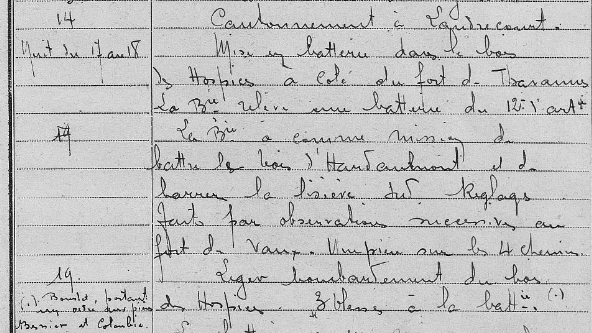 14 Cantonnement à Landrecourt.
Nuit du 17 au 18 Mise en batterie dans le bois
des Hospices à côté du fort de Tavannes
La Bie relève une batterie du 12e d'art
La Bie a comme mission de
battre les bois d'Hardaumont et de
barrer la lisière Réglages
faits par observations successives au
fort de Vaux. Un pieu sur les 4 chemins.
19. Léger bombardement du bois
des Hospices 3 blessés à la battie. (.)
(.) portant
un
Bessier et Colombie.